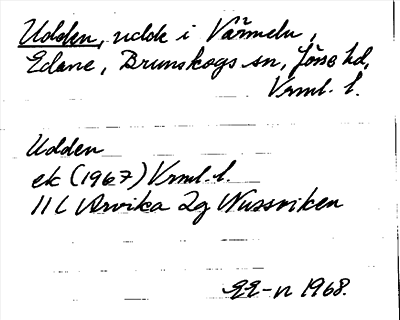 Udden, udde i Värmeln,
Edane, Brunskogs sn, Jösse hd,
Vrml. l.
Udden
ek (1967) Vrml. l.
11 C Arvika 2g Nussviken
EE-n 1968.